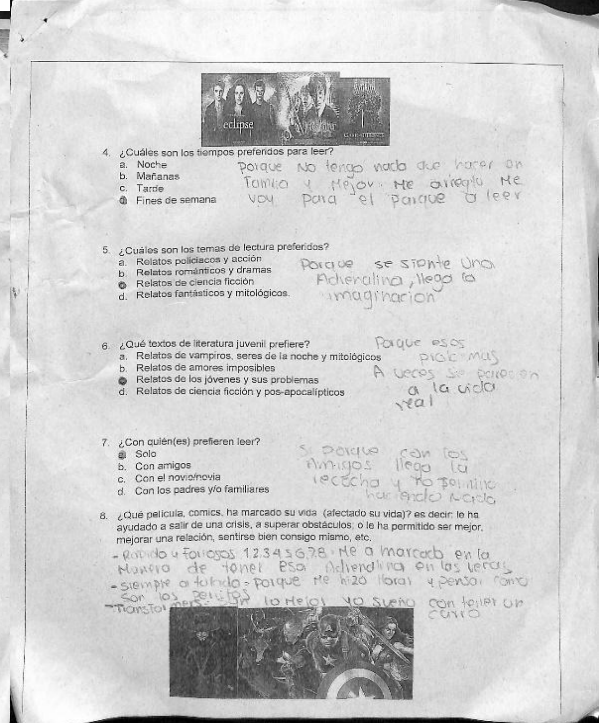 eclipse
4. ¿Cuáles son los tiempos preferidos para leer?
a. Noche
b. Mañanas
c. Tarde
d. Fines de semana
Porque No tengo nada que hacer en
Y Mejor Me arreglo Me
voy para el parque a leer
5. ¿Cuáles son los temas de lectura preferidos?
a. Relatos policiacos y acción
b. Relatos románticos y dramas
c. Relatos de ciencia ficción
d. Relatos fantásticos y mitológicos.
Porque se siente una
Adrenalina, llega la
imaginacion
6. ¿Qué textos de literatura juvenil prefiere?
a. Relatos de vampiros, seres de la noche y mitológicos
b. Relatos de amores imposibles
c. Relatos de los jóvenes y sus problemas
d. Relatos de ciencia ficción y pos-apocalípticos
Porque esos
mas
A veces se parecen
a la vida
real
7. ¿Con quién(es) prefieren leer?
a. Solo
b. Con amigos
c. Con el novio/novia
d. Con los padres y/o familiares
Si porque con los
Amigos llega la
y no termino
haciendo nada
8. ¿Qué película, comics, ha marcado su vida (afectado su vida)? es decir: le ha
ayudado a salir de una crisis, a superar obstáculos, o le ha permitido ser mejor,
mejorar una relación, sentirse bien consigo mismo, etc.
- Rapido y furiosos 1.2.3.4.5.6.7.8. Me a marcado en la
Manera de tener esa Adrenalina en las
- siempre a tu lado - porque Me hizo llorar y pensar como
son los perritos
- Transformers lo mejor yo sueño con tener un
carro